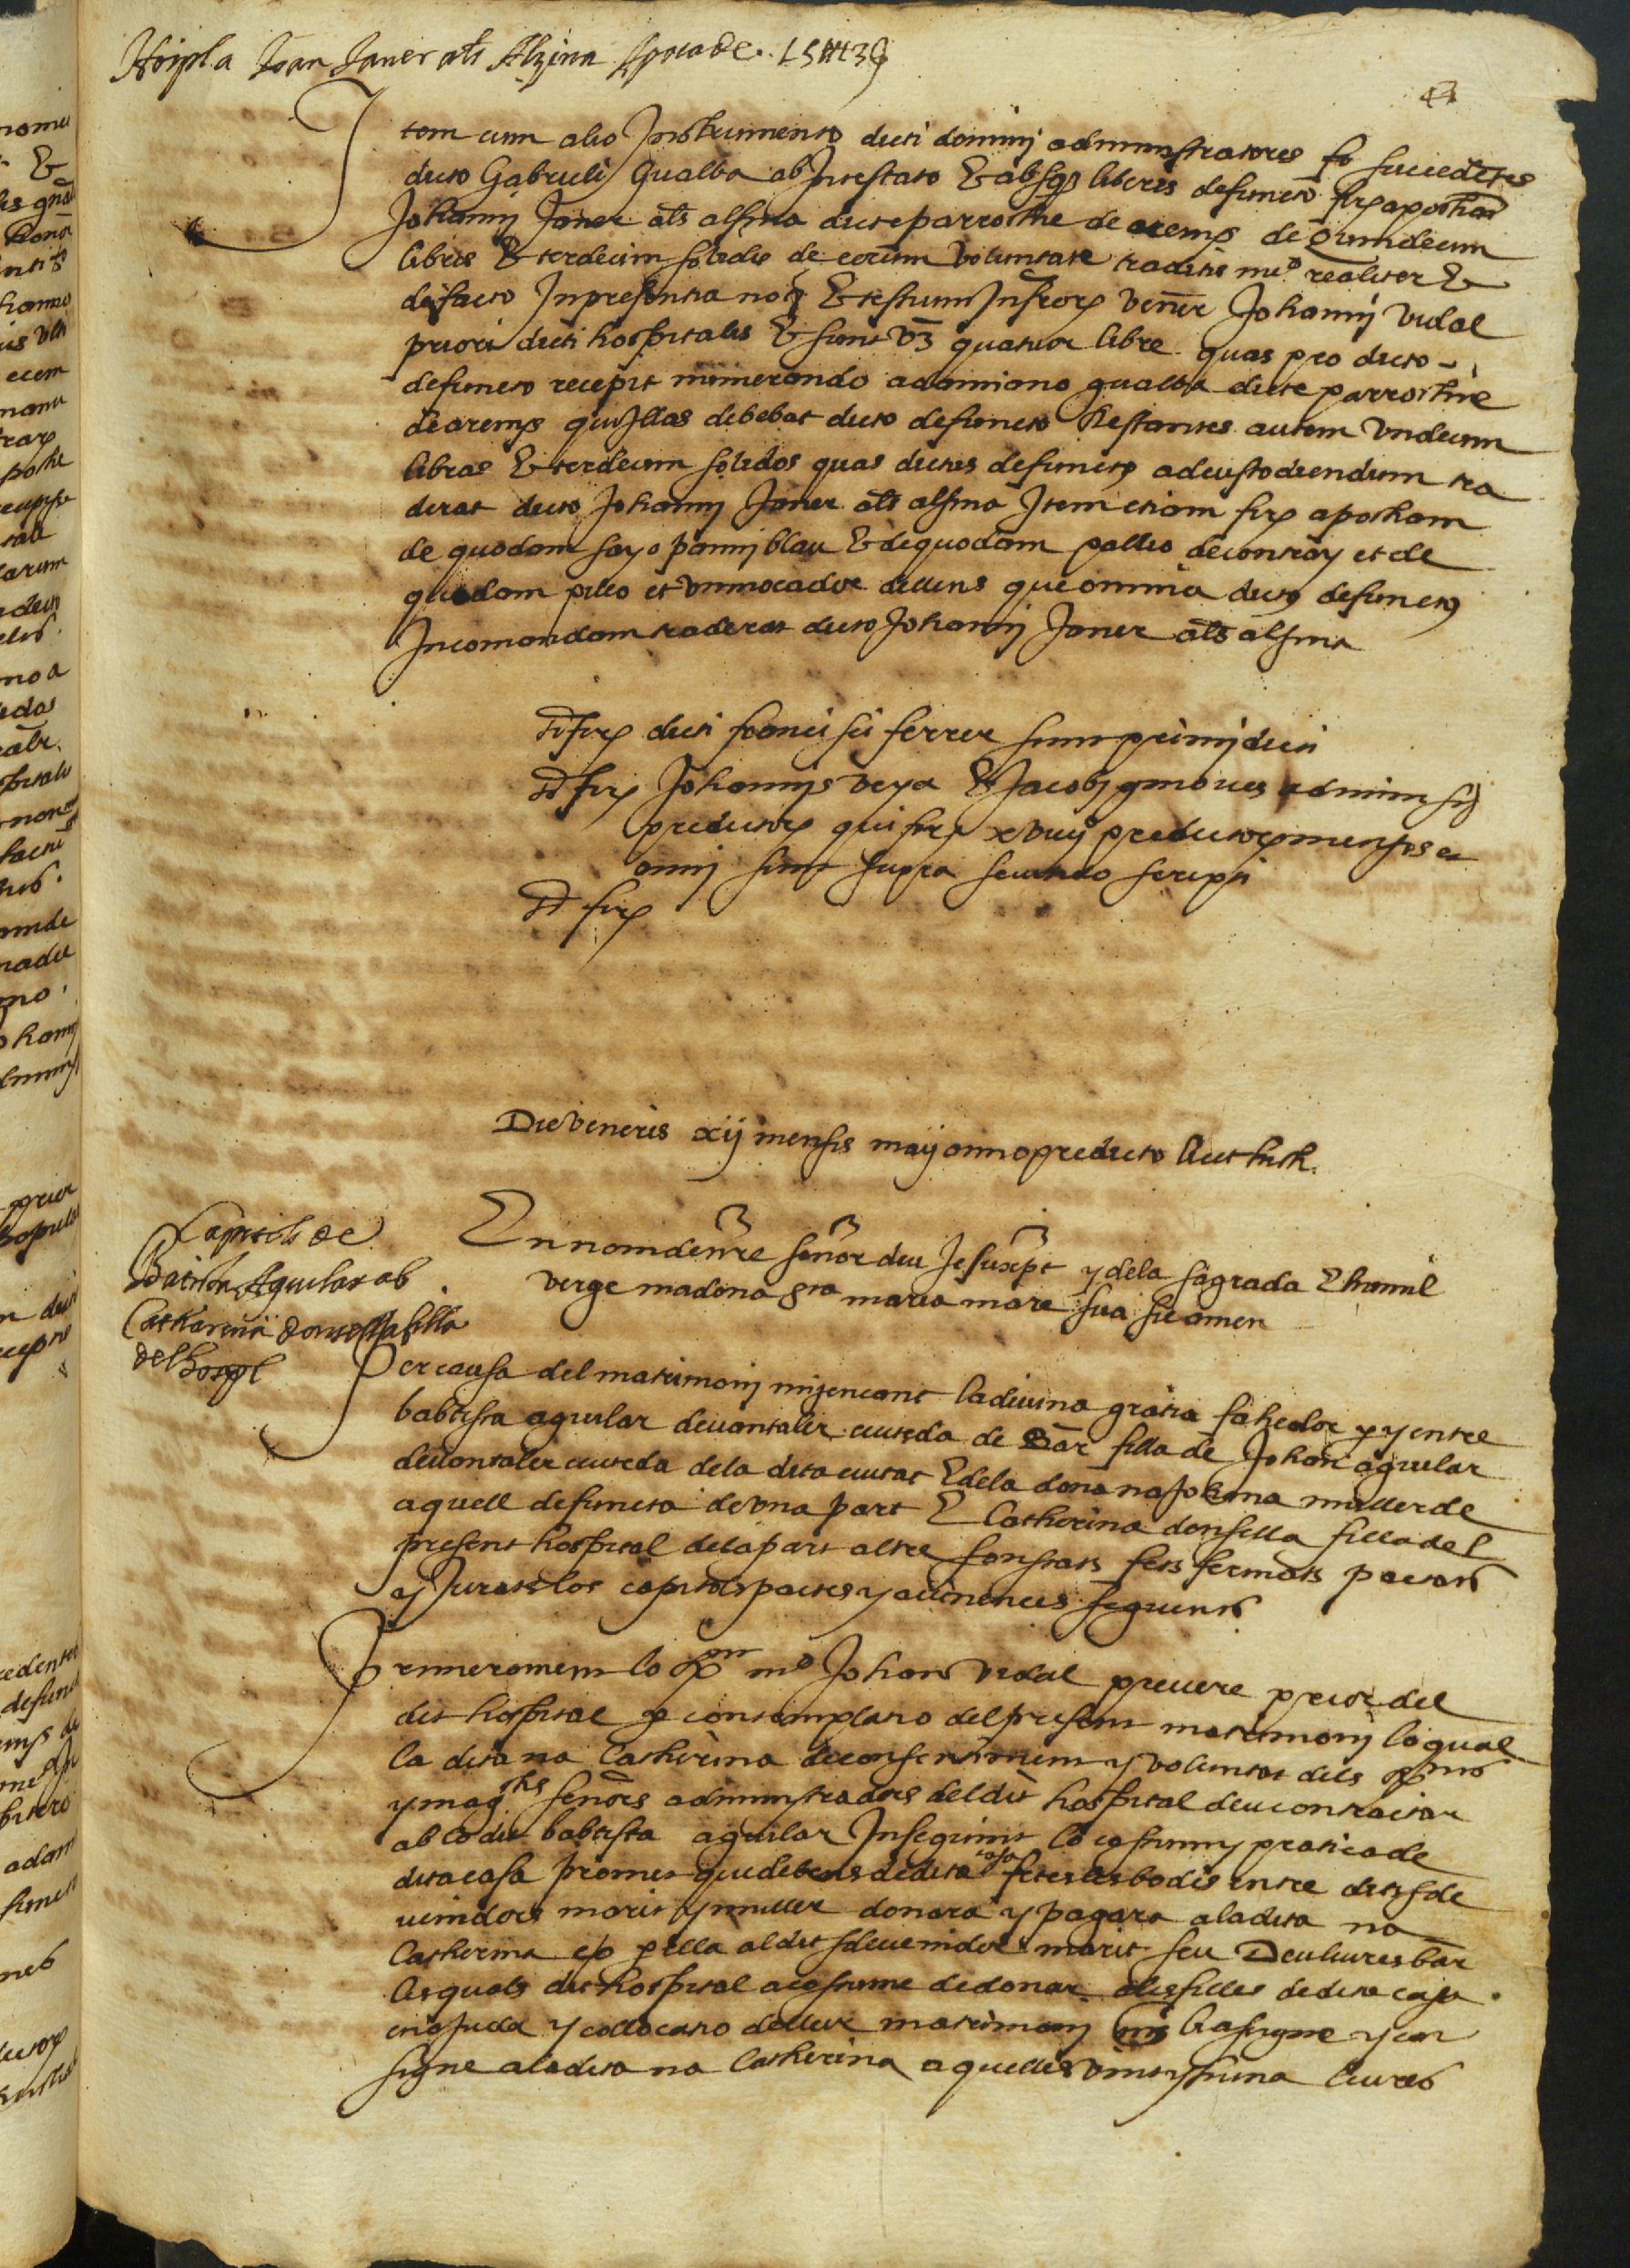 Hospl a Joan Janer als Alzina Apoca de. 15 ħ 13 ß
43
Item cum alio Instrumento dicti dominj administratores so succedētes
dicto Gabrieli Gualba ab Intestato & absqз liberis defuncto firꝫ apocham
Johannj Janer als alsina dicte parrochie de arenys de quindecim
libris & terdecim solidis de eorum voluntate traditis mᵒ realiter &
de facto In presentia noꝫ & testium Infrorꝫ vener Johannj vidal
priori dicti hospitalis & sunt vꝫ quatuor libre quas pro dicto
defuncto recepit numerando a damiano gualba dicte parrochie
de arenys qui Illas debebat dicto defuncto Restantes autem undecim
libras & terdecim solidos quas dictus defunctꝫ ad custodiendum tra
dirat dicto Johannj Janer als alsina Item etiam firꝫ apocham
de quodam sayo pannj blau & de quodam pallio de contray et de
quodam pileo et un mocador de lens que omnia dictꝫ defunctꝫ
In comandam traderat dicto Johannj Janer als alsina
Tt firꝫ dicti francisci ferrer sunt primj dicti
Tt firꝫ Johannis veya & Jacobj ginoues adminisꝫ
predictorꝫ qui firꝫ xviiijᵒ predictorꝫ mensis et
annj sunt supra secundo scripti
Tt firꝫ
Die veneris xij mensis maij anno predicto
Capitols de
Batista Aguilar ab
Catharina donsella filla
del hospl
En nom de nre señor deu Jesuxpt y de la sagrada E humil
verge madona sta maria mare sua sie amen
Per causa del matrimonj mijencant la divina gratia fahedor per y entre
babtista aguilar deuantaler ciuteda de Bar filla de Johan aguilar
deuantaler ciuteda de la dita ciutat E de la dona na Johana muller de
aquell defuncta de una part E Catherina donsella filla del
present hospital de la part altre son stats fets fermats pactats
y Jurats los capitols pactes y auinences seguents
Primerament lo Rnt mᵒ Johan vidal preuere prior del
dit hospital per contemplatio del present matrimonj lo qual
la dita na Catherina de consentiment y voluntat dels Rnts
y magchs señors administradors del dit hospital deu contractar
ab lo dit babtista aguilar Inseguint lo costum y pratica de
dita casa promet que de bens de dita casa fetes les bodes entre dits sde
uenidors marit y muller donara y pagara a la dita na
Catherina e/o per ella al dit sdeuenidor marit seu Deu liures bar
les quals dit hospital acostume de donar a les filles de dita casa
en ajuda y collocatio de llur matrimonj li assigne y con
signe a la dita na Catherina aquelles vint y una liures